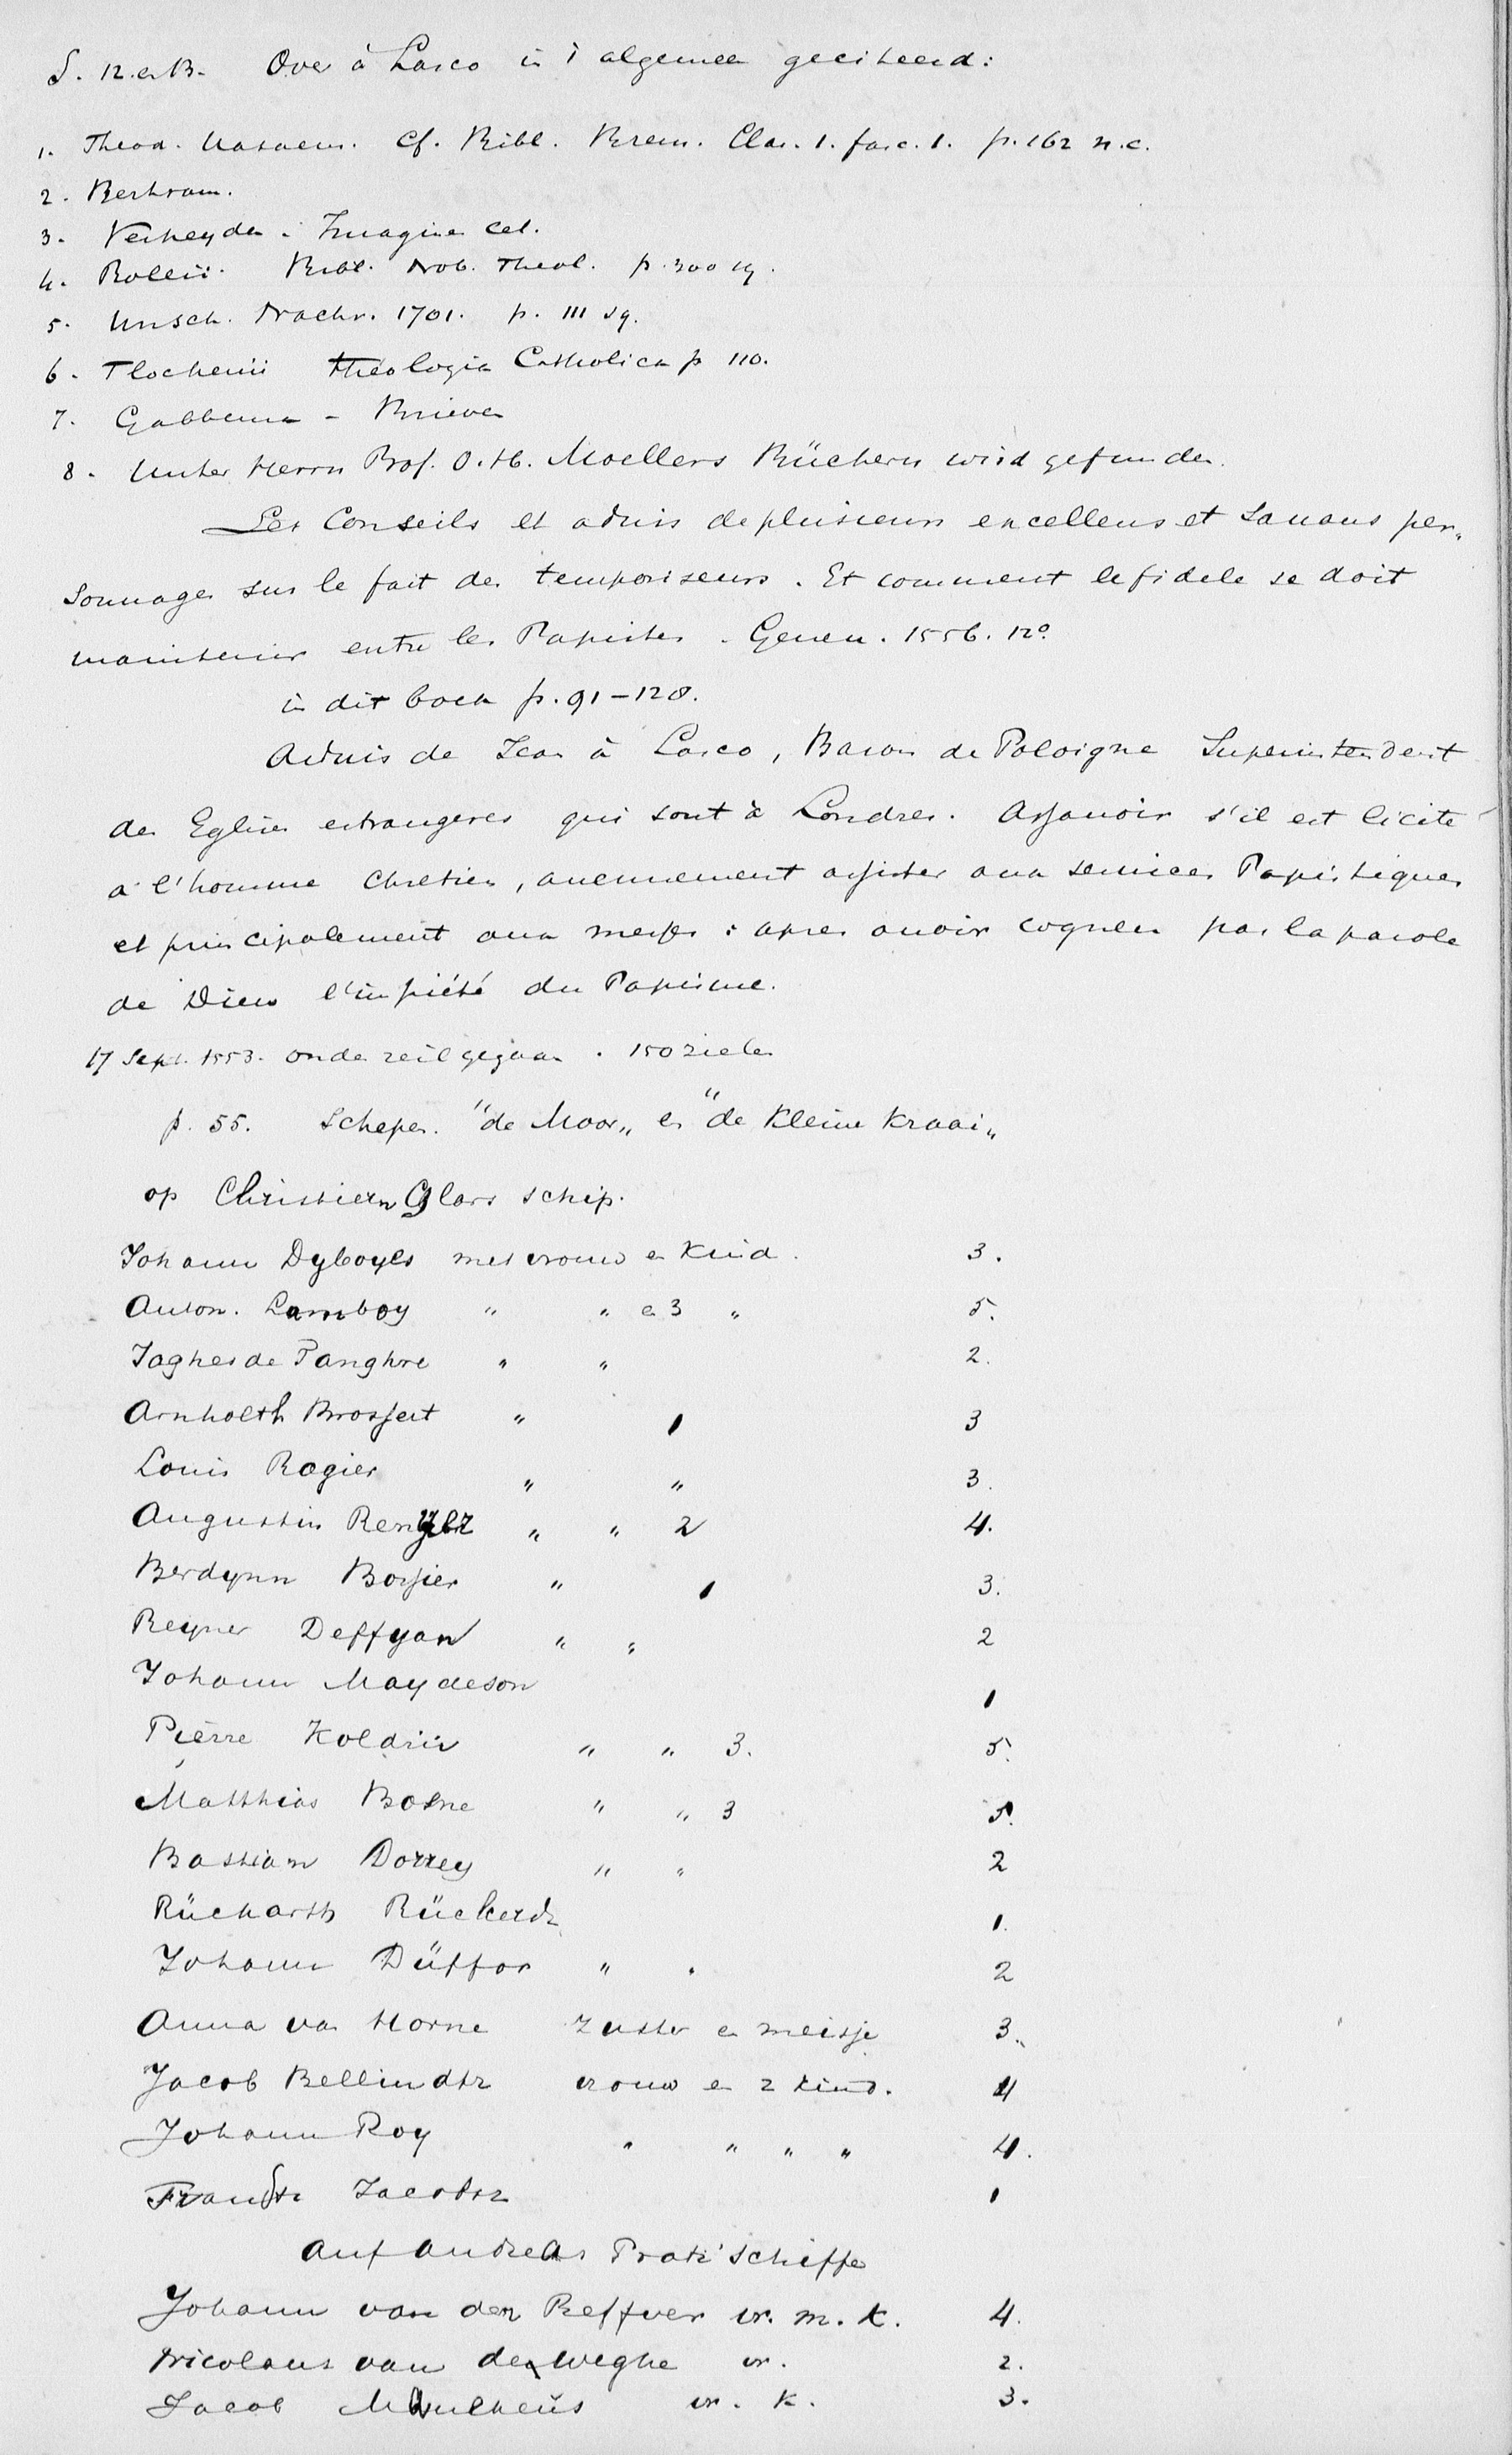 S. 12. en 13. Over à Lasco in 't algemeen geciteerd:
1. Theod. Hasaeus. Cf. Bibl. Brem. Clas. 1. fasc. 1. p. 162 n.c.
2. Bertram.
3. Verheyden. Imagines Cel.
4. Bibl. Nob. Theol. p. 300 sq.
5. Unsch. Nachr. 1701. p. 111 sq.
6. theologia Catholica p 110.
7. Gabbema - Brieven
8. Unter Herrn Prof. O. H. Moellers Büchern wird gefunden.
Les Conseils et aduis de plusieurs excellens et sauans per„
sonnages sur le fait des temporiseurs. Et comment le fidele se doit
maintenir entre les Papistes. Geneu. 1556. 12°.
in dit boek p. 91-128.
Aduis de Jean à Lasco, Baron de Poloigne Superintendent
des Eglises estrangeres qui sont à Londres. Assauoir s'il est licite
a l'homme Chretien, aucunement assister aux seruices Papistiques
et principalement aux messes: apres auoir cogneu par la parole
de Dieu l'impiété du Papisme.
17 Sept. 1553. onder zeil gegaan. 150 zielen
p. 55. Schepen. "de Moor„ en "de Kleine Kraai„
op Christiern Glars schip.
Johann Dyboyls met vrouw en kind. 3.
Anton. Lamboy " " en 3 " 5.
Jagher de Panghre " " 2.
Arnholth Brossert " 1 3
Louis Rogier " " 3.
Augustin " " 2 4.
Berdynn Bossier " 1 3.
Reyner Deffyan " " 2
Johann Maydeson 1
Pierre Koldrin " " 3. 5.
Matthias Bosne " " 3 5.
Bastian Dorrey " " 2
Rückarth Rückerdz 1.
Johann Düffor " " 2
Anna van Horne zuster en meisje 3.
Jacob Bellindtz vrouw en 2 kind. 4
Johann Roy " " " " 4.
Jacobsz 1
auf Andreas Pratz' schiffe
Johann van den Reffver vr. m. k. 4.
Nicolaus van der Weghe vr. 2.
Jacob vr. k. 3.